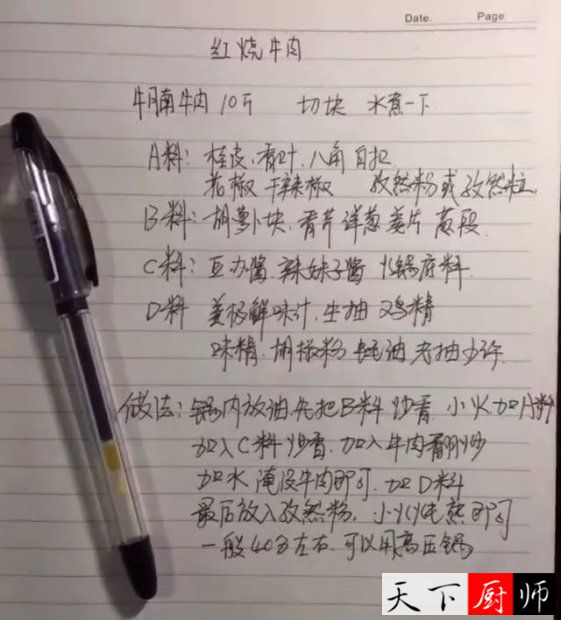 Date. Page.
红烧牛肉
牛腩牛肉 10斤 切块 水煮一下
A料: 桂皮.香叶.八角 白扣
花椒 干辣椒 孜然粉或孜然粒
B料: 胡萝卜块.香芹 洋葱 姜片 葱段
C料: 豆办酱.辣妹子酱 火锅底料
D料 美极鲜味汁.生抽 鸡精
味精.胡椒粉 蚝油 老抽少许
做法: 锅内放油.先把B料炒香.小火加A料
加入C料炒香.加入牛肉翻炒
加水 淹没牛肉即可.加D料
最后放入孜然粉.小火炖熬即可
一般40分左右.可以用高压锅
天下厨师